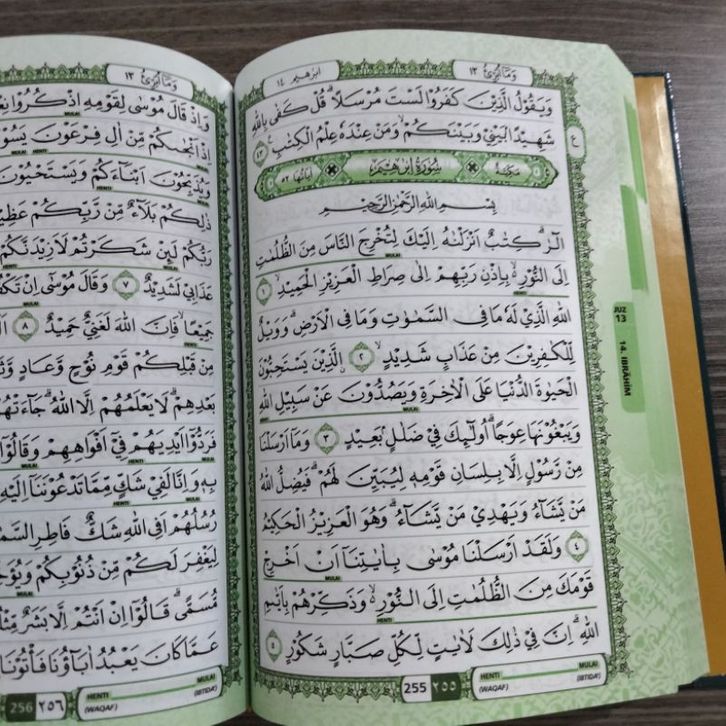 وَمَآ اُبَرِّئُ ١٣
ابرٰهيم ١٤
وَيَقُوْلُ الَّذِيْنَ كَفَرُوْا لَسْتَ مُرْسَلًاۗ قُلْ كَفٰى بِاللّٰهِ
شَهِيْدًاۢ بَيْنِيْ وَبَيْنَكُمْۙ وَمَنْ عِنْدَهٗ عِلْمُ الْكِتٰبِ ࣖ ٤٣
مَكِّيَّةٌ
سُوْرَةُ اِبْرٰهِيْمَ
اٰيَاتُهَا ٥٢
بِسْمِ اللّٰهِ الرَّحْمٰنِ الرَّحِيْمِ
الۤرٰ ۗ كِتٰبٌ اَنْزَلْنٰهُ اِلَيْكَ لِتُخْرِجَ النَّاسَ مِنَ الظُّلُمٰتِ
MULAI
اِلَى النُّوْرِ ەۙ بِاِذْنِ رَبِّهِمْ اِلٰى صِرَاطِ الْعَزِيْزِ الْحَمِيْدِۙ ١
HENTI MULAI
اللّٰهِ الَّذِيْ لَهٗ مَا فِى السَّمٰوٰتِ وَمَا فِى الْاَرْضِۗ وَوَيْلٌ
لِّلْكٰفِرِيْنَ مِنْ عَذَابٍ شَدِيْدٍۙ ٢ ۨالَّذِيْنَ يَسْتَحِبُّوْنَ
الْحَيٰوةَ الدُّنْيَا عَلَى الْاٰخِرَةِ وَيَصُدُّوْنَ عَنْ سَبِيْلِ اللّٰهِ
MULAI
وَيَبْغُوْنَهَا عِوَجًاۗ اُولٰۤىِٕكَ فِيْ ضَلٰلٍۢ بَعِيْدٍ ٣ وَمَآ اَرْسَلْنَا
مِنْ رَّسُوْلٍ اِلَّا بِلِسَانِ قَوْمِهٖ لِيُبَيِّنَ لَهُمْۗ فَيُضِلُّ اللّٰهُ
مَنْ يَّشَاۤءُ وَيَهْدِيْ مَنْ يَّشَاۤءُۗ وَهُوَ الْعَزِيْزُ الْحَكِيْمُ
٤ وَلَقَدْ اَرْسَلْنَا مُوْسٰى بِاٰيٰتِنَآ اَنْ اَخْرِجْ
MULAI
قَوْمَكَ مِنَ الظُّلُمٰتِ اِلَى النُّوْرِ ەۙ وَذَكِّرْهُمْ بِاَيّٰىمِ
HENTI
اللّٰهِ ۗاِنَّ فِيْ ذٰلِكَ لَاٰيٰتٍ لِّكُلِّ صَبَّارٍ شَكُوْرٍ ٥
255 ٢٥٥
HENTI (WAQAF)
MULAI (IBTIDA')
JUZ 13
14. IBRĀHĪM
وَمَآ اُبَرِّئُ ١٣
وَاِذْ قَالَ مُوْسٰى لِقَوْمِهِ اذْكُرُوْا
اِذْ اَنْجٰىكُمْ مِّنْ اٰلِ فِرْعَوْنَ
وَيُذَبِّحُوْنَ اَبْنَاۤءَكُمْ وَيَسْتَحْيُوْنَ
ذٰلِكُمْ بَلَاۤءٌ مِّنْ رَّبِّكُمْ
رَبُّكُمْ لَىِٕنْ شَكَرْتُمْ لَاَزِيْدَنَّكُمْ
عَذَابِيْ لَشَدِيْدٌ ٧ وَقَالَ مُوْسٰٓى اِنْ
جَمِيْعًاۙ فَاِنَّ اللّٰهَ لَغَنِيٌّ حَمِيْدٌ ٨
مِنْ قَبْلِكُمْ قَوْمِ نُوْحٍ وَّعَادٍ
بَعْدِهِمْۗ لَا يَعْلَمُهُمْ اِلَّا اللّٰهُۗ
فَرَدُّوْٓا اَيْدِيَهُمْ فِيْٓ اَفْوَاهِهِمْ وَقَالُوْٓا
بِهٖ وَاِنَّا لَفِيْ شَكٍّ مِّمَّا تَدْعُوْنَنَآ اِلَيْهِ
رُسُلُهُمْ اَفِى اللّٰهِ شَكٌّ فَاطِرِ
لِيَغْفِرَ لَكُمْ مِّنْ ذُنُوْبِكُمْ
مُّسَمًّىۗ قَالُوْٓا اِنْ اَنْتُمْ اِلَّا بَشَرٌ
عَمَّا كَانَ يَعْبُدُ اٰبَاۤؤُنَا فَأْتُوْنَا
256 ٢٥٦
HENTI (WAQAF)
MULAI (IBTIDA')